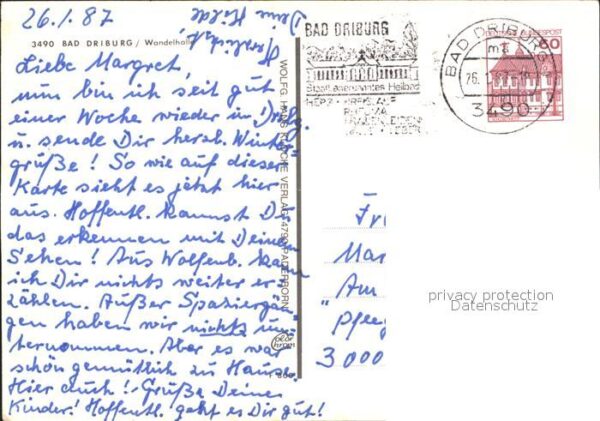 26.1.87
Herzlichst, Deine Hilde
3490 BAD DRIBURG / Wandelhalle
Liebe Margret,
nun bin ich seit gut
einer Woche wieder in Dribg.
u. sende Dir herzl. Winter-
grüße! So wie auf dieser
Karte sieht es jetzt hier
aus. Hoffentl. kannst Du
das erkennen mit Deinem
Sehen! Aus Wolfenb. kann
ich Dir nichts weiter er-
zählen. Außer Spaziergän-
gen haben wir nichts un-
ternommen. Aber es war
schön gemütlich zu Hause.
Hier auch! Grüße Deine
Kinder! Hoffentl. geht es Dir gut!
WOLFG. HANS KLOCKE VERLAG 4790 PADERBORN
BAD DRIBURG
Staatl. anerkanntes Heilbad
HERZ KREISLAUF
RHEUMA
FRAUENLEIDEN
LEBER
BAD DRIBURG
26.1.
3490
DEUTSCHE BUNDESPOST
60
Fr
Mar
Am
"Pfleg
3000
privacy protection
Datenschutz